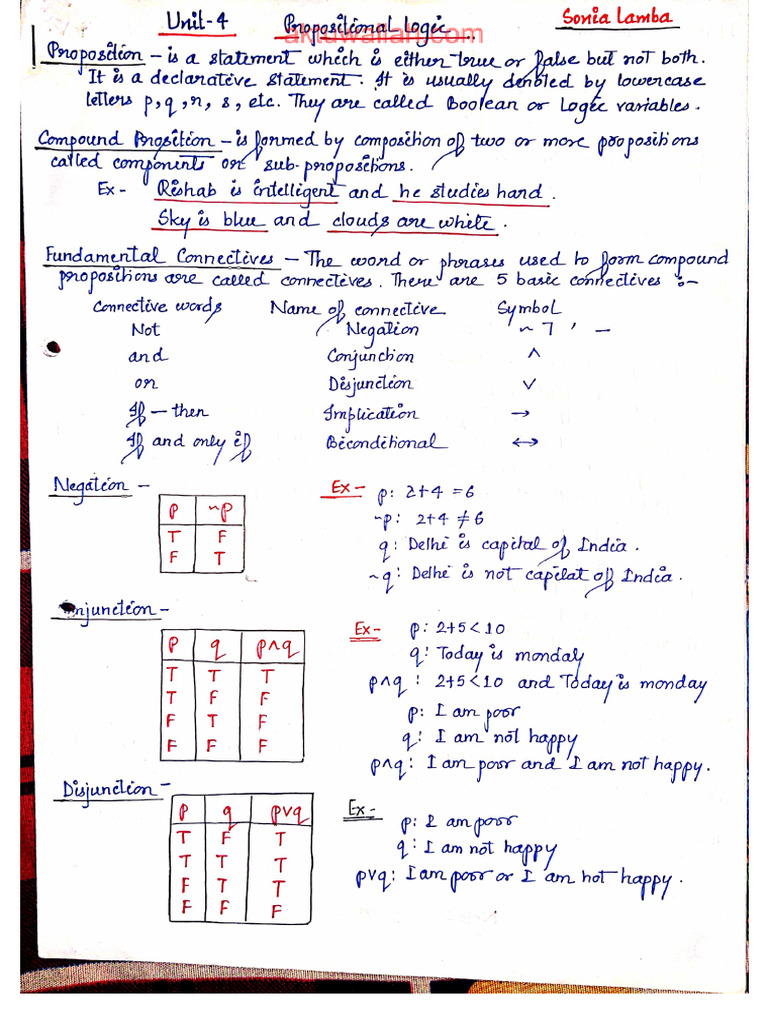 Unit-4 Propositional Logic Sonia Lamba
aktuwallah.com
Proposition - is a statement which is either true or false but not both.
It is a declarative statement. It is usually denoted by lowercase
letters p, q, r, s, etc. They are called Boolean or Logic variables.
Compound Proposition - is formed by composition of two or more propositions
called components or sub-propositions.
Ex - Rishab is intelligent and he studies hard.
Sky is blue and clouds are white.
Fundamental Connectives - The word or phrases used to form compound
propositions are called connectives. There are 5 basic connectives :-
Connective words Name of connective Symbol
Not Negation ~ ⁊ ' —
and Conjunction ∧
or Disjunction ∨
If - then Implication →
If and only if Biconditional ↔
Negation - Ex -
p ~p
T F
F T
p: 2+4 = 6
~p: 2+4 ≠ 6
q: Delhi is capital of India.
~q: Delhi is not capilat of India.
njunction - Ex -
p q p∧q
T T T
T F F
F T F
F F F
p: 2+5 < 10
q: Today is monday
p∧q : 2+5 < 10 and Today is monday
p: I am poor
q: I am not happy
p∧q: I am poor and I am not happy.
Disjunction - Ex -
p q p∨q
T F T
T T T
F T T
F F F
p: I am poor
q: I am not happy
p∨q: I am poor or I am not happy.